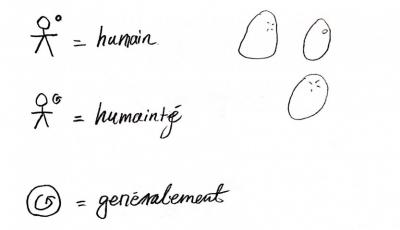 = humain
= humainté
= generalement